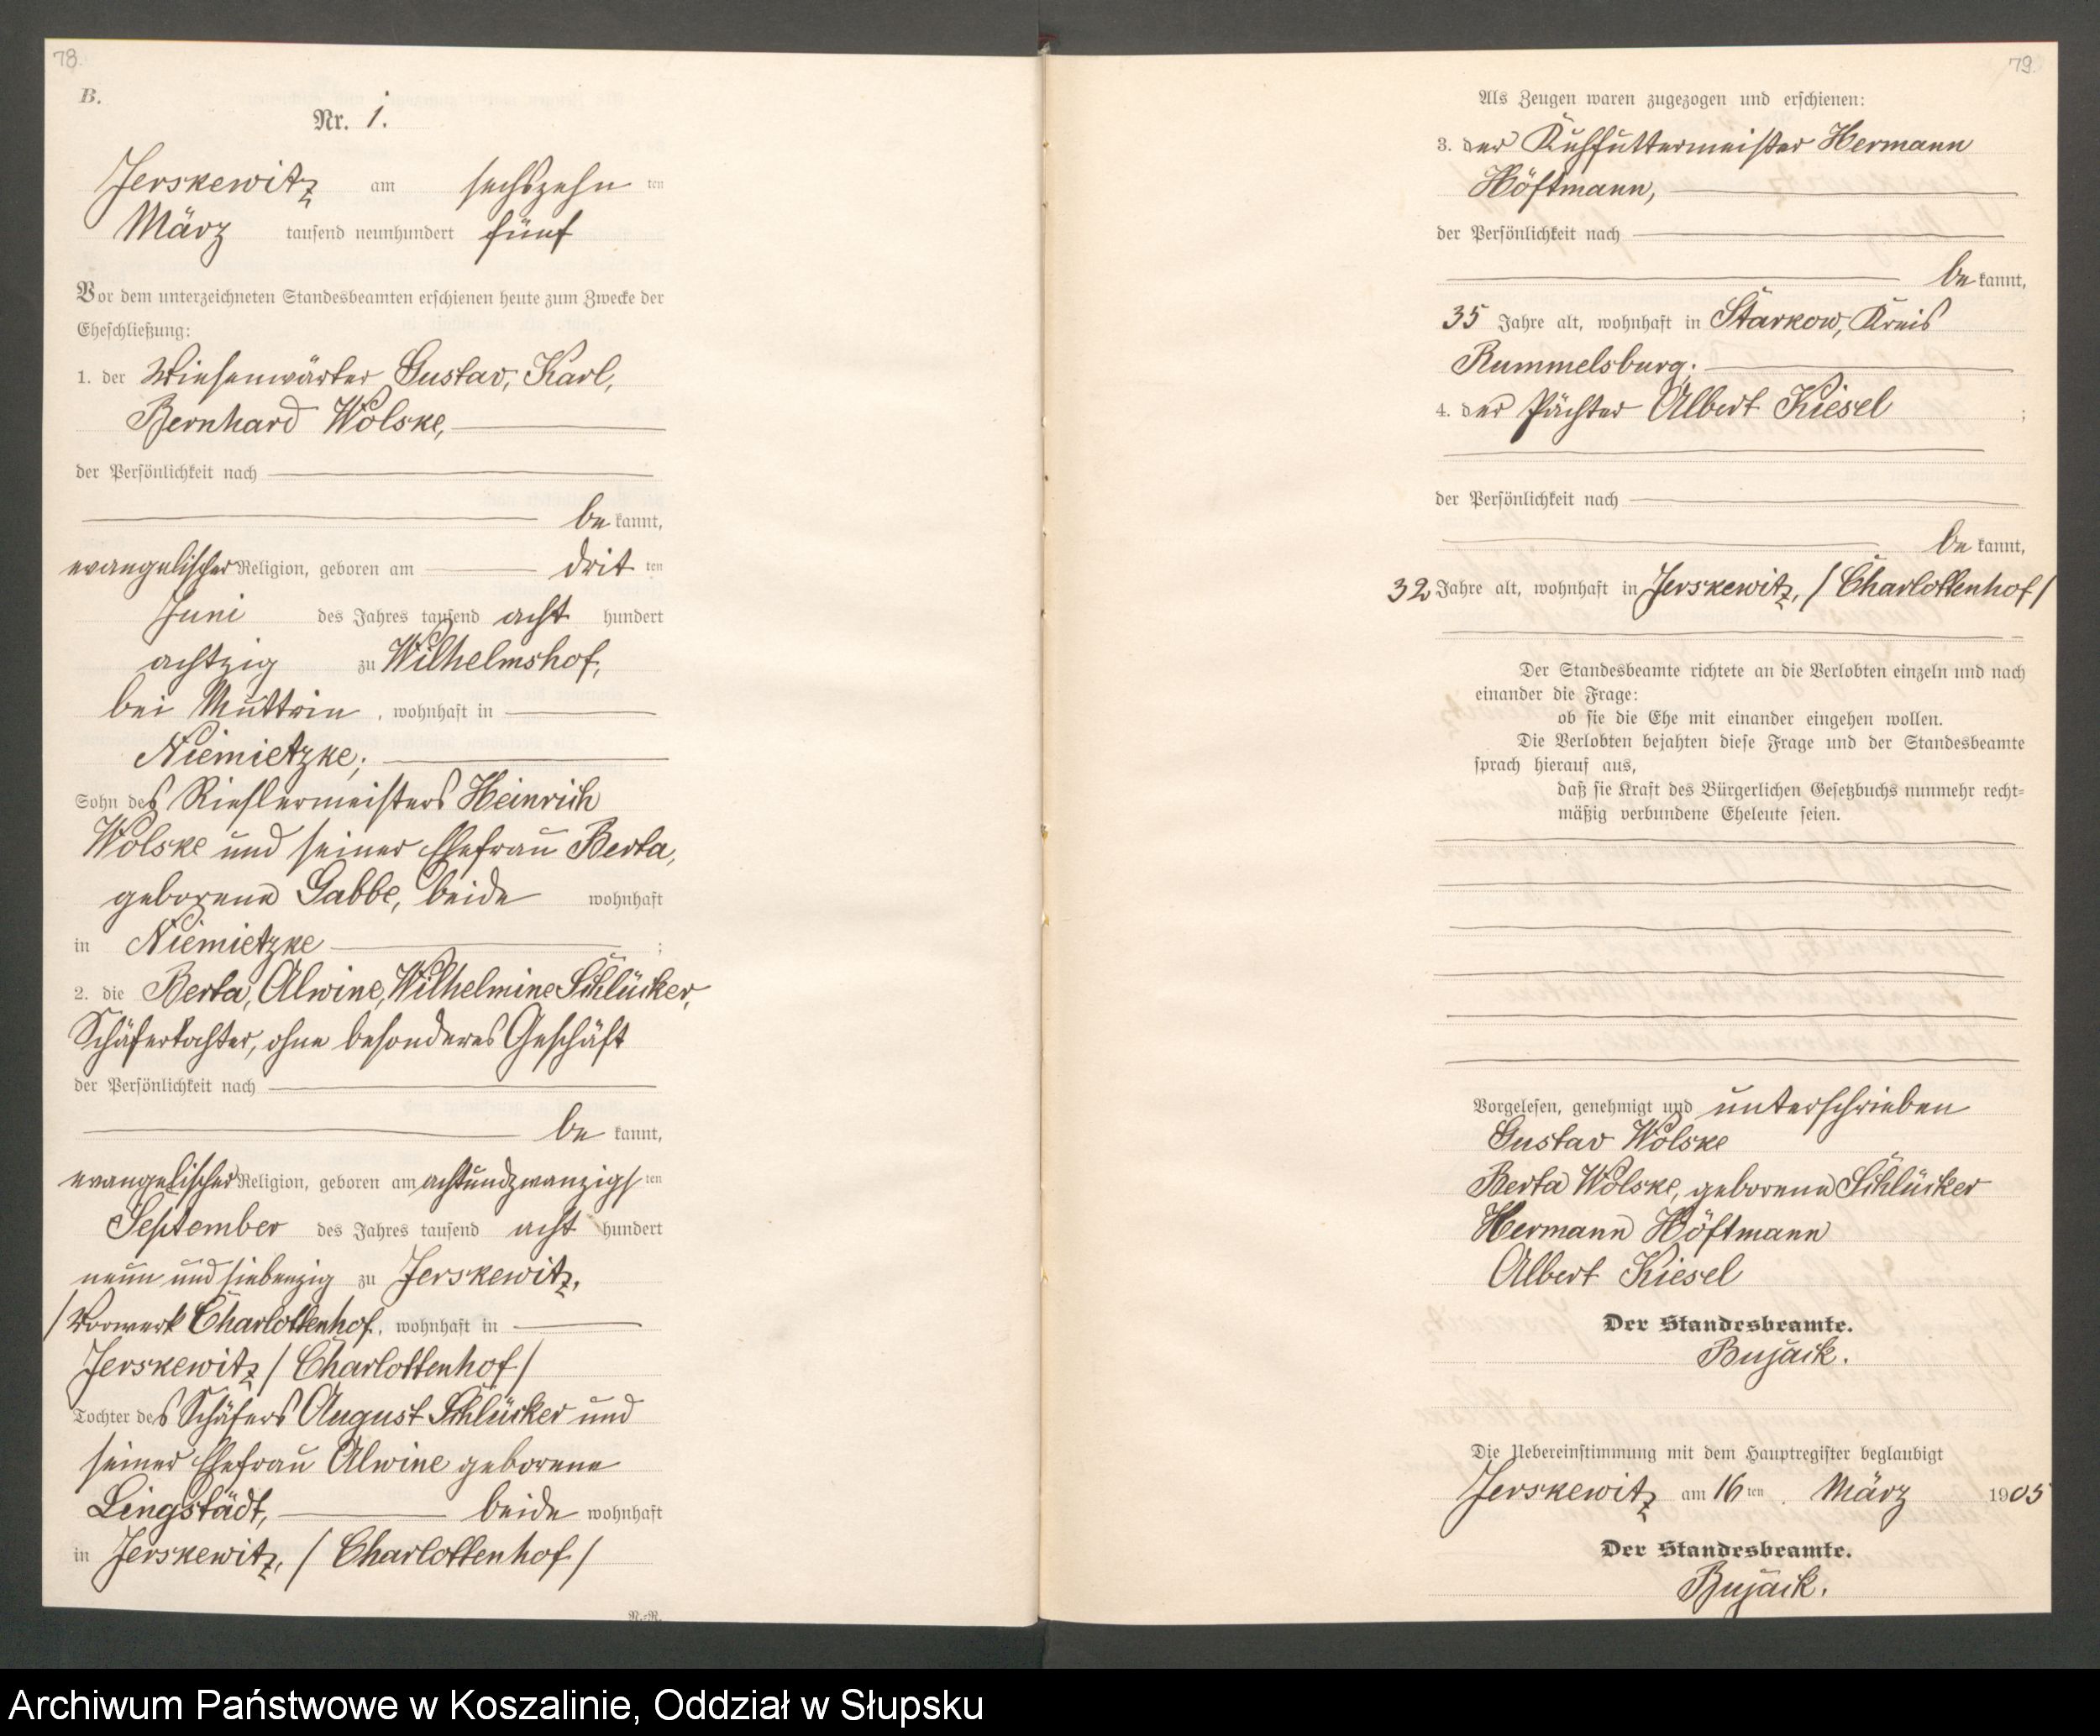 78.
B.
Nr. 1.
Jerskewitz am sechszehn ten
März tausend neunhundert fünf
Vor dem unterzeichneten Standesbeamten erschienen heute zum Zwecke der
Eheschließung:
1. der Wiesenwärter Gustav, Karl,
Bernhard Wolske,
der Persönlichkeit nach
be kannt,
evangelischer Religion, geboren am drit ten
Juni des Jahres tausend acht hundert
achtzig zu Wilhelmshof,
bei Muttrin, wohnhaft in
Niemietzke;
Sohn des Rieslermeisters Heinrich
Wolske und seiner Ehefrau Berta,
geborene Gabbe, beide wohnhaft
in Niemietzke ;
2. die Berta, Alwine, Wilhelmine Schlücker,
Schäfertochter, ohne besonderes Geschäft
der Persönlichkeit nach
be kannt,
evangelischer Religion, geboren am achtundzwanzigs ten
September des Jahres tausend acht hundert
neun und siebenzig zu Jerskewitz,
/Vorwerk Charlottenhof, wohnhaft in
Jerskewitz /Charlottenhof/
Tochter des Schäfers August Schlücker und
seiner Ehefrau Alwine geborene
Lingstädt, beide wohnhaft
in Jerskewitz, /Charlottenhof/
N.-R.
79.
Als Zeugen waren zugezogen und erschienen:
3. der Kuhfuttermeister Hermann
Höftmann,
der Persönlichkeit nach
be kannt,
35 Jahre alt, wohnhaft in Starkow, Kreis
Rummelsburg;
4. der Pächter Albert Kiesel
;
der Persönlichkeit nach
be kannt,
32 Jahre alt, wohnhaft in Jerskewitz, /Charlottenhof/
Der Standesbeamte richtete an die Verlobten einzeln und nach
einander die Frage:
ob sie die Ehe mit einander eingehen wollen.
Die Verlobten bejahten diese Frage und der Standesbeamte
sprach hierauf aus,
daß sie kraft des Bürgerlichen Gesetzbuchs nunmehr recht=
mäßig verbundene Eheleute seien.
Vorgelesen, genehmigt und unterschrieben
Gustav Wolske
Berta Wolske, geborene Schlücker
Hermann Höftmann
Albert Kiesel
Der Standesbeamte.
Bujack.
Die Uebereinstimmung mit dem Hauptregister beglaubigt
Jerskewitz am 16 ten März 1905
Der Standesbeamte.
Bujack.
Archiwum Państwowe w Koszalinie, Oddział w Słupsku